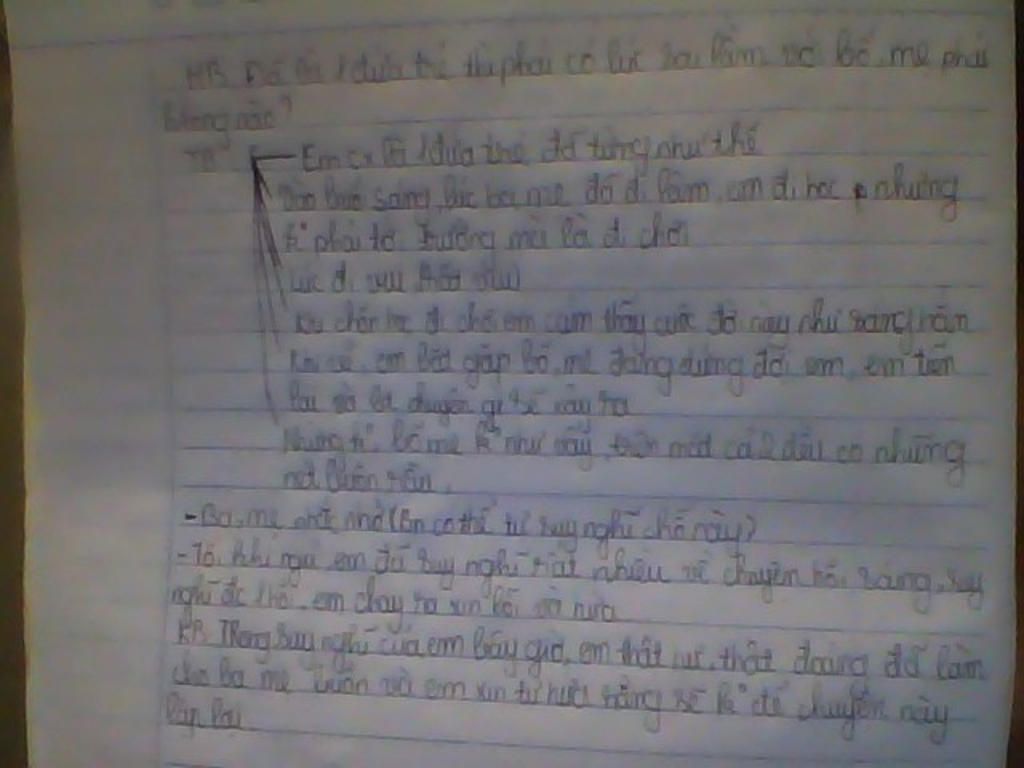 MB Đã là 1 đứa trẻ thì phải có lúc sai lầm và bố, mẹ phải
lòng nào?
TB - Em cx là 1 đứa trẻ, đã từng như thế
Vào buổi sáng, lúc ba, mẹ đã đi làm, em đi học nhưng
k° phải tới trường mà là đi chơi
Lúc đi vui
trốn học đi chơi em cảm thấy cuộc đời này như
Khi về, em bắt gặp bố, mẹ đang đứng đợi em, em tiến
lại và là chuyện gì sẽ xảy ra
Nhưng k°, bố mẹ k° như vậy, trên mặt cả 2 đều có những
nét buồn rầu.
- Ba, mẹ nhắc nhở (Bn có thể tự suy nghĩ chỗ này)
- Tối, khi ngủ em đã suy nghĩ rất nhiều về chuyện hồi sáng, suy
nghĩ đc thôi, em chạy ra xin lỗi và hứa
KB Trong suy nghĩ của em bây giờ, em thật hư, thật đáng để làm
cho ba mẹ buồn và em xin tự hứa rằng sẽ k° để chuyện này
lặp lại